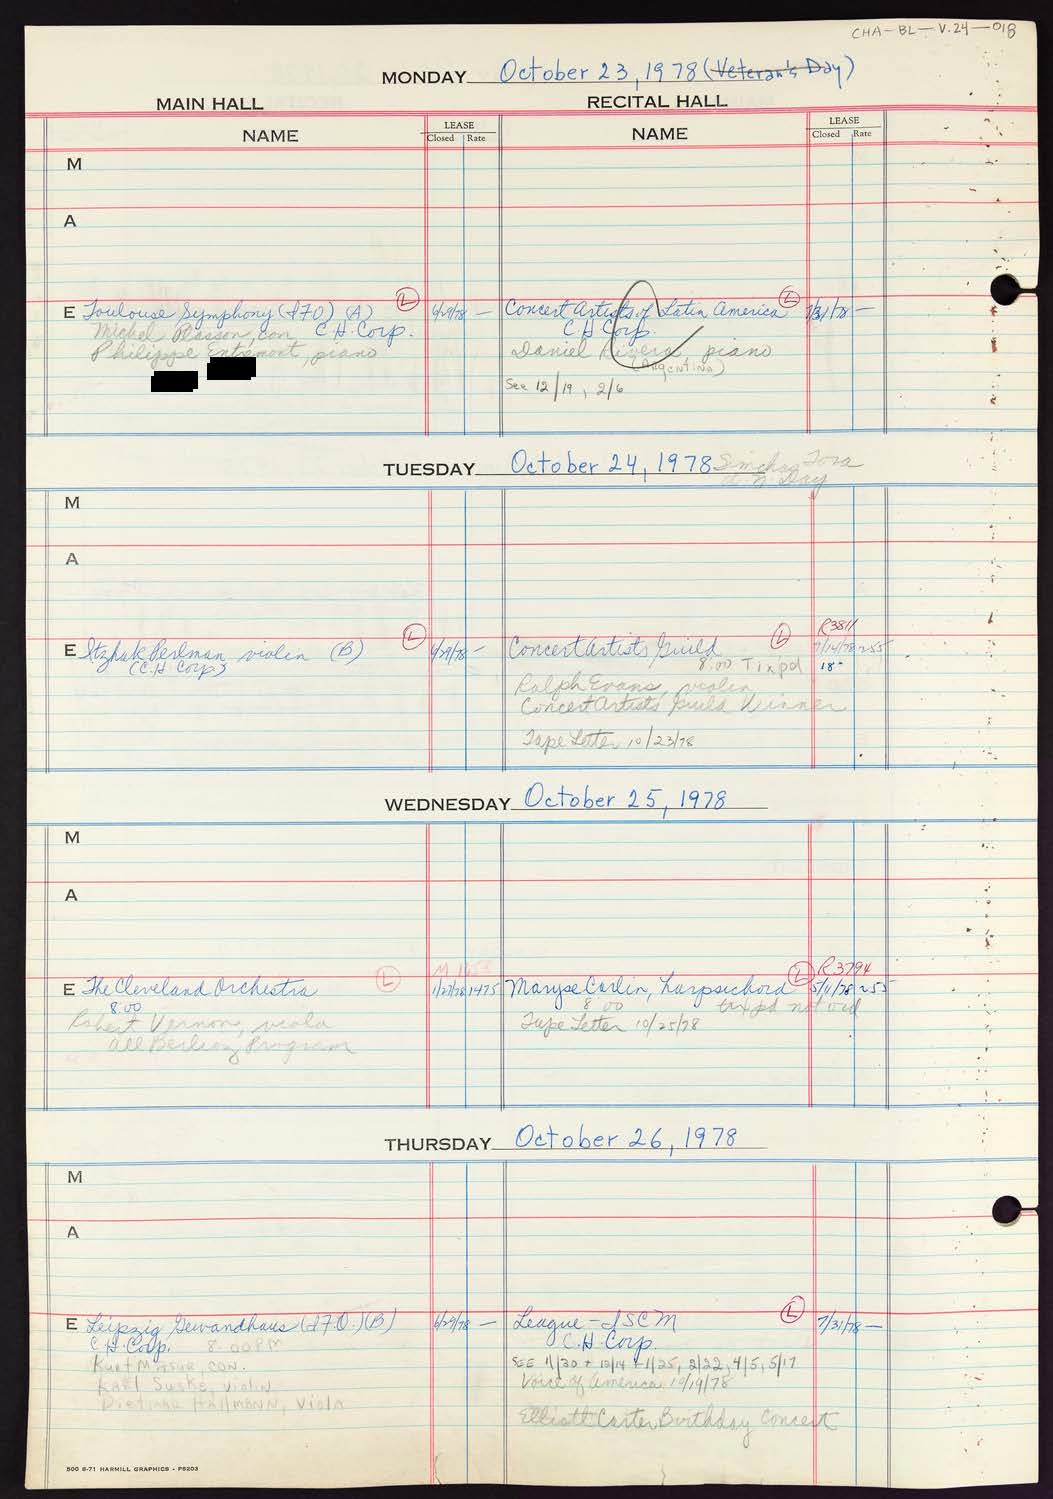 CHA-BL-V.24-018
MONDAY October 23, 1978 (Veteran's Day)
MAIN HALL RECITAL HALL
NAME LEASE Closed Rate NAME LEASE Closed Rate
M
A
E Toulouse Symphony (IFO) (A) L 6/29/78 -
C.H. Corp.
Michel Plasson, con.
Philippe Entremont, piano
Concert Artists of Latin America L 7/31/78 -
C H Corp.
Daniel Rivera, piano
(Argentina)
See 12/19, 2/6
TUESDAY October 24, 1978 Simchas Tora
U.N. Day
M
A
E Itzhak Perlman violin (B) L 6/29/78 -
(C.H. Corp)
R3811
Concert Artists Guild L 7/14/78 255
8:00 Tix pd 18-
Ralph Evans, violin
Concert Artists Guild Winner
Tape Letter 10/23/78
WEDNESDAY October 25, 1978
M
A
E The Cleveland Orchestra L 1/27/78 1475
8:00
Robert Vernon, viola
All Berlioz Program
R3794
Maryse Carlin, harpsichord L 5/11/78 255
8 00 tix pd not ord
Tape Letter 10/25/78
THURSDAY October 26, 1978
M
A
E Leipzig Gewandhaus (IFO.) (B) 6/29/78 -
C.H. Corp. 8:00 PM
Kurt Masur, con.
Karl Suske, violin
Dietmar Hallmann, viola
League-ISCM L 7/31/78 -
C.H. Corp.
SEE 11/30 + 12/14 + 1/25, 2/22, 4/5, 5/17
Voice of America 10/19/78
Elliott Carter Birthday Concert
500 8-71 HARMILL GRAPHICS - P5203